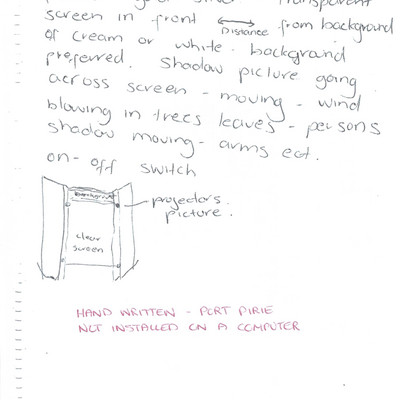 Transparent
screen in front ⟷ from background
Distance
of cream or white. background
preferred. Shadow picture going
across screen - moving - wind
blowing in trees leaves - persons
shadow moving - arms ect.
on - off switch
projectors
picture.
clear
screen
HAND WRITTEN - PORT PIRIE
NOT INSTALLED ON A COMPUTER